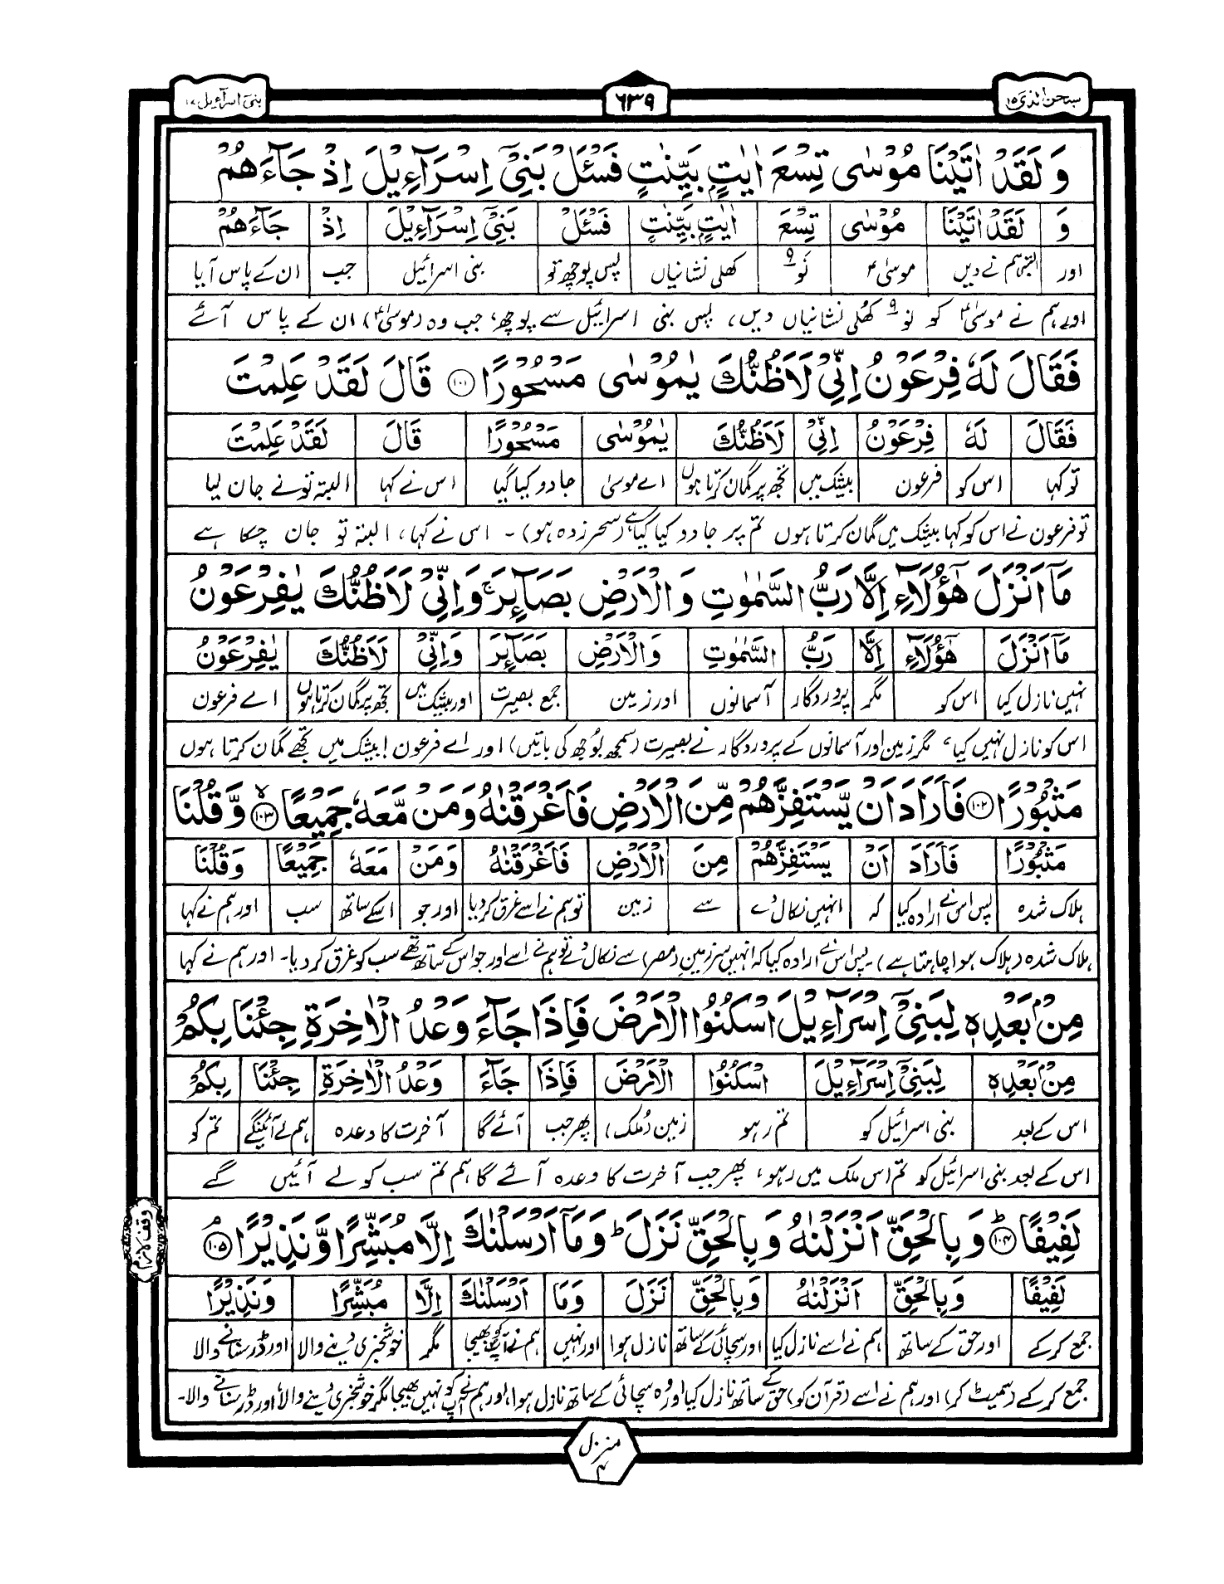 سبحن الذی ۱۵
۶۳۹
بنی اسرآءیل ۱۷
وَ لَقَدْ اٰتَيْنَا مُوْسٰى تِسْعَ اٰيٰتٍۭ بَيِّنٰتٍ فَسْـَٔلْ بَنِيْٓ اِسْرَآءِيْلَ اِذْ جَآءَهُمْ
وَ لَقَدْ اٰتَيْنَا مُوْسٰى تِسْعَ اٰيٰتٍۭ بَيِّنٰتٍ فَسْـَٔلْ بَنِيْٓ اِسْرَآءِيْلَ اِذْ جَآءَهُمْ
اور البتہ ہم نے دیں موسیٰؑ نو۹ کھلی نشانیاں پس پوچھ تو بنی اسرائیل جب ان کے پاس آیا
اور ہم نے موسیٰؑ کو نو۹ کھلی نشانیاں دیں، پس بنی اسرائیل سے پوچھ، جب وہ (موسیٰؑ) ان کے پاس آئے
فَقَالَ لَهٗ فِرْعَوْنُ اِنِّيْ لَاَظُنُّكَ يٰمُوْسٰى مَسْحُوْرًا ۝۱۰۱ قَالَ لَقَدْ عَلِمْتَ
فَقَالَ لَهٗ فِرْعَوْنُ اِنِّيْ لَاَظُنُّكَ يٰمُوْسٰى مَسْحُوْرًا قَالَ لَقَدْ عَلِمْتَ
تو کہا اس کو فرعون بیشک میں تجھ پر گمان کرتا ہوں اے موسیٰ جادو کیا گیا اس نے کہا البتہ تو نے جان لیا
تو فرعون نے اس کو کہا بیشک میں گمان کرتا ہوں تم پر جادو کیا گیا ہے (سحر زدہ ہو)۔ اس نے کہا، البتہ تو جان چکا ہے
مَآ اَنْزَلَ هٰٓؤُلَآءِ اِلَّا رَبُّ السَّمٰوٰتِ وَالْاَرْضِ بَصَآئِرَ ۚ وَاِنِّيْ لَاَظُنُّكَ يٰفِرْعَوْنُ
مَآ اَنْزَلَ هٰٓؤُلَآءِ اِلَّا رَبُّ السَّمٰوٰتِ وَالْاَرْضِ بَصَآئِرَ وَاِنِّيْ لَاَظُنُّكَ يٰفِرْعَوْنُ
نہیں نازل کیا اس کو مگر پروردگار آسمانوں اور زمین جمع بصیرت اور بیشک میں تجھ پر گمان کرتا ہوں اے فرعون
اس کو نازل نہیں کیا، مگر زمین اور آسمانوں کے پروردگار نے بصیرت (سمجھ بوجھ کی باتیں) اور اے فرعون! بیشک میں تجھے گمان کرتا ہوں
مَثْبُوْرًا ۝۱۰۲ فَاَرَادَ اَنْ يَّسْتَفِزَّهُمْ مِّنَ الْاَرْضِ فَاَغْرَقْنٰهُ وَمَنْ مَّعَهٗ جَمِيْعًا ۝۱۰۳ ۙ وَّقُلْنَا
مَثْبُوْرًا فَاَرَادَ اَنْ يَّسْتَفِزَّهُمْ مِنَ الْاَرْضِ فَاَغْرَقْنٰهُ وَمَنْ مَعَهٗ جَمِيْعًا وَقُلْنَا
ہلاک شدہ پس اس نے ارادہ کیا کہ انہیں نکال دے سے زمین تو ہم نے اسے غرق کر دیا اور جو اسکے ساتھ سب اور ہم نے کہا
ہلاک شدہ (ہلاک ہوا چاہتا ہے)۔ پس اس نے ارادہ کیا کہ انہیں سرزمین (مصر) سے نکال دے تو ہم نے اسے اور جو اس کے ساتھ تھے سب کو غرق کر دیا۔ اور ہم نے کہا
مِنْۢ بَعْدِهٖ لِبَنِيْٓ اِسْرَآءِيْلَ اسْكُنُوا الْاَرْضَ فَاِذَا جَآءَ وَعْدُ الْاٰخِرَةِ جِئْنَا بِكُمْ
مِنْۢ بَعْدِهٖ لِبَنِيْٓ اِسْرَآءِيْلَ اسْكُنُوا الْاَرْضَ فَاِذَا جَآءَ وَعْدُ الْاٰخِرَةِ جِئْنَا بِكُمْ
اس کے بعد بنی اسرائیل کو تم رہو زمین (ملک) پھر جب آئے گا آخرت کا وعدہ ہم لے آئینگے تم کو
اس کے بعد بنی اسرائیل کو تم اس ملک میں رہو، پھر جب آخرت کا وعدہ آئے گا ہم تم سب کو لے آئیں گے
لَفِيْفًا ۝۱۰۴ ؕ وَبِالْحَقِّ اَنْزَلْنٰهُ وَبِالْحَقِّ نَزَلَ ؕ وَمَآ اَرْسَلْنٰكَ اِلَّا مُبَشِّرًا وَّنَذِيْرًا ۝۱۰۵ ۘ
وقف لازم
لَفِيْفًا وَبِالْحَقِّ اَنْزَلْنٰهُ وَبِالْحَقِّ نَزَلَ وَمَا اَرْسَلْنٰكَ اِلَّا مُبَشِّرًا وَنَذِيْرًا
جمع کر کے اور حق کے ساتھ ہم نے اسے نازل کیا اور سچائی کے ساتھ نازل ہوا اور نہیں ہم نے آپ کو بھیجا مگر خوشخبری دینے والا اور ڈر سنانے والا
جمع کر کے (سمیٹ کر) اور ہم نے اسے (قرآن کو) حق کے ساتھ نازل کیا اور وہ سچائی کے ساتھ نازل ہوا، اور ہم نے آپ کو نہیں بھیجا مگر خوشخبری دینے والا اور ڈر سنانے والا۔
منزل ۴